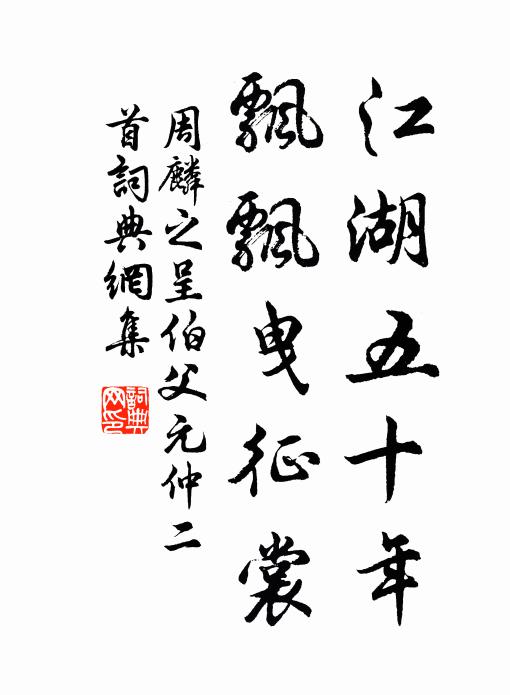 江湖五十年
飄飄曳征裳
周麟之呈伯父元仲二
首詞典網集
詞典
网印